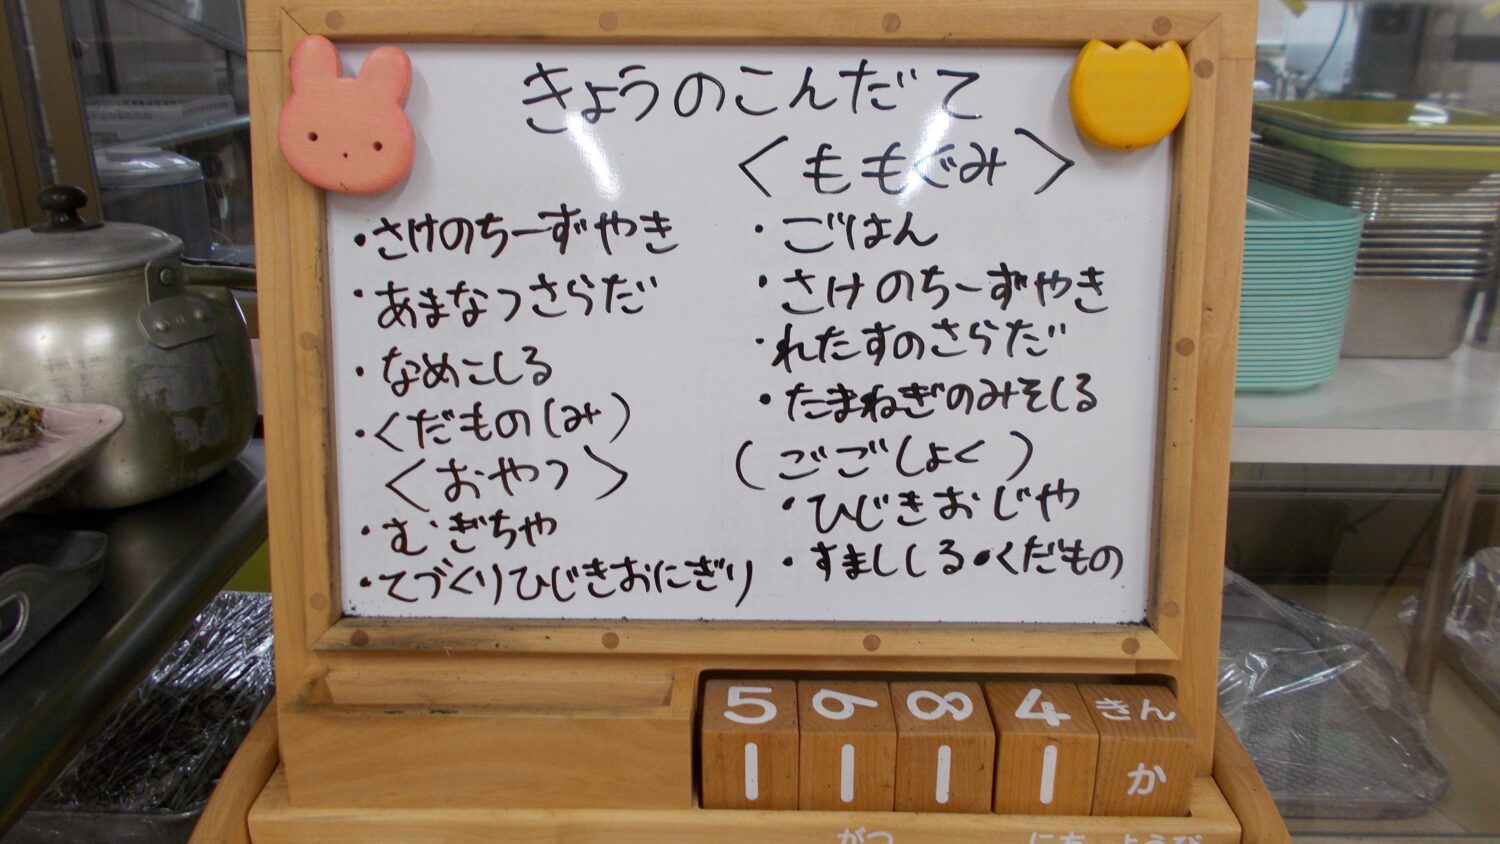 きょうのこんだて
・さけのちーずやき
・あまなつさらだ
・なめこしる
・くだもの(み)
<おやつ>
・むぎちや
・てづくりひじきおにぎり
<ももぐみ>
・ごはん
・さけのちーずやき
・れたすのさらだ
・たまねぎのみそしる
(ごごしょく)
・ひじきおじや
・すまししる・くだもの
5 6 8 4 きん
1 1 1 1 か
がつ にち ようび